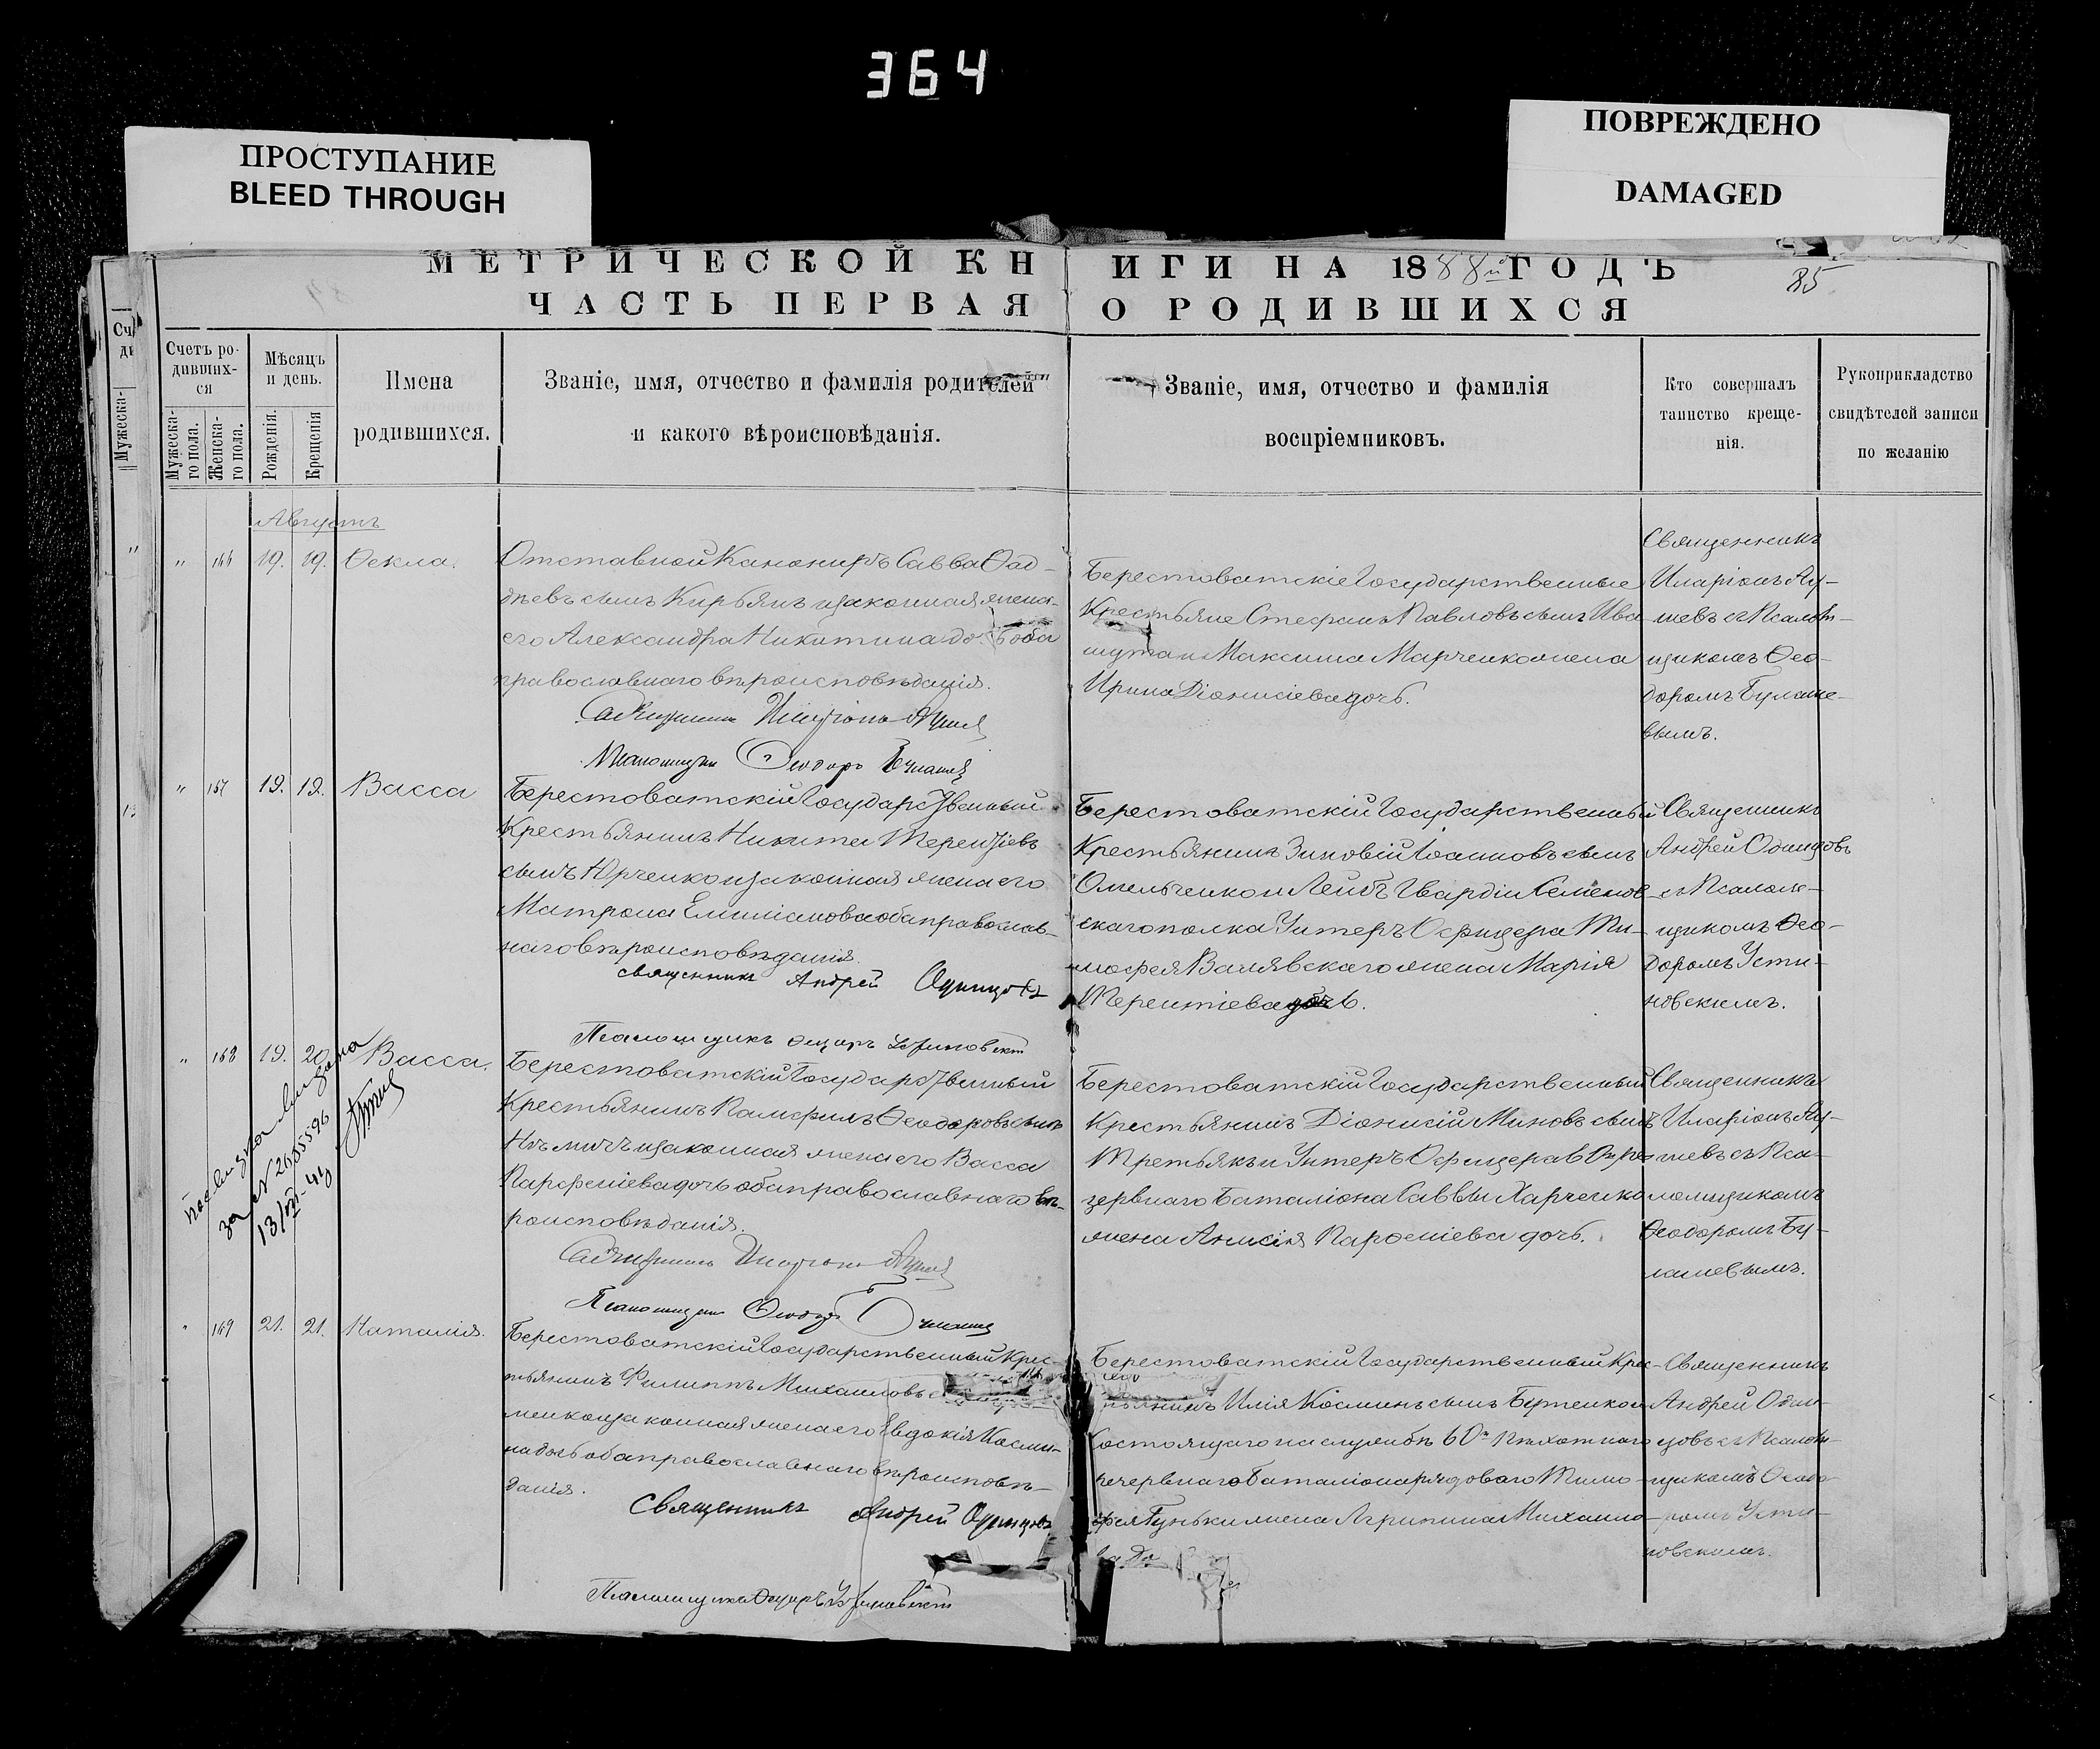 364
ПРОСТУПАНИЕ
BLEED THROUGH
ПОВРЕЖДЕНО
DAMAGED
МЕТРИЧЕСКОЙ КНИГИ НА 1888й ГОДЪ
85
ЧАСТЬ ПЕРВАЯ О РОДИВШИХСЯ
Счетъ ро-
дивших-
ся
Мужеска-
го пола.
Женска-
го пола.
Мѣсяцъ
и день.
Рожденія.
Крещенія
Имена
родившихся.
Званіе, имя, отчество и фамилія родителей
и какого вѣроисповѣданія.
Званіе, имя, отчество и фамилія
воспріемниковъ.
Кто совершалъ
таинство креще-
нія.
Рукоприкладство
свидѣтелей записи
по желанію
Августъ
" 166 19. 19. Ѳекла.
Отставной Канониръ Савва Ѳад-
дѣевъ сынъ Кирьянъ и законная жена
его Александра Никитина до оба
православнаго вѣроисповѣданія.
Берестоватскіе Государственные
Крестьяне Стефанъ Павловъ сынъ Ива
Максима Марченко жена
Ирина Діонисіева дочь.
Священникъ
Иларіонъ
съ Псалом-
щикомъ Ѳео-
доромъ Булаше-
вымъ.
" 167 19. 19. Васса
Берестоватскій Государственный
Крестьянинъ Никита Терентіевъ
сынъ Юрченко и законная жена его
Матрона Емиліанова оба православ-
наго вѣроисповѣданія.
Священникъ Андрей Одинцовъ
Берестоватскій Государственный
Крестьянинъ Зиновій Іоанновъ сынъ
Омельченко и Лейбъ Гвардіи Семенов-
скаго полка Унтеръ Офицера Ти-
мофея жена Марія
Терентіева дочь.
Священникъ
Андрей Одинцовъ
съ Псалом-
щикомъ Ѳео-
доромъ Усти-
новскимъ.
" 168 19. 20. Васса.
за № 2685596
13/VI-44
Берестоватскій Государственный
Крестьянинъ Памфилъ Ѳеодоровъ сынъ
и законная жена его Васса
Парфеніева дочь оба православнаго вѣ-
роисповѣданія.
Берестоватскій Государственный
Крестьянинъ Діонисій Миновъ сынъ
Третьякъ и Унтеръ Офицера
зервнаго Баталіона Саввы Харченко
жена Анисія Парѳеніева дочь.
Священникъ
Иларіонъ
съ Пса-
ломщикомъ
Ѳеодоромъ Бу-
лашевымъ.
" 169 21. 21. Наталія.
Берестоватскій Государственный Крес-
тьянинъ Филиппъ Михаиловъ
менко и законная жена его Евдокія Косми-
на дочь оба православнаго вѣроисповѣ-
данія.
Священникъ Андрей Одинцовъ
Берестоватскій Государственный Крес-
тьянинъ Илія Косминъ сынъ Бутенко и
состоящаго на службѣ 60го Пѣхотнаго
резервнаго Баталіона рядоваго Тимо-
фея Гуньки жена Агрипина Михаило-
ва до
Священникъ
Андрей Один-
цовъ съ Псалом-
щикомъ Ѳеодо-
ромъ Усти-
новскимъ.